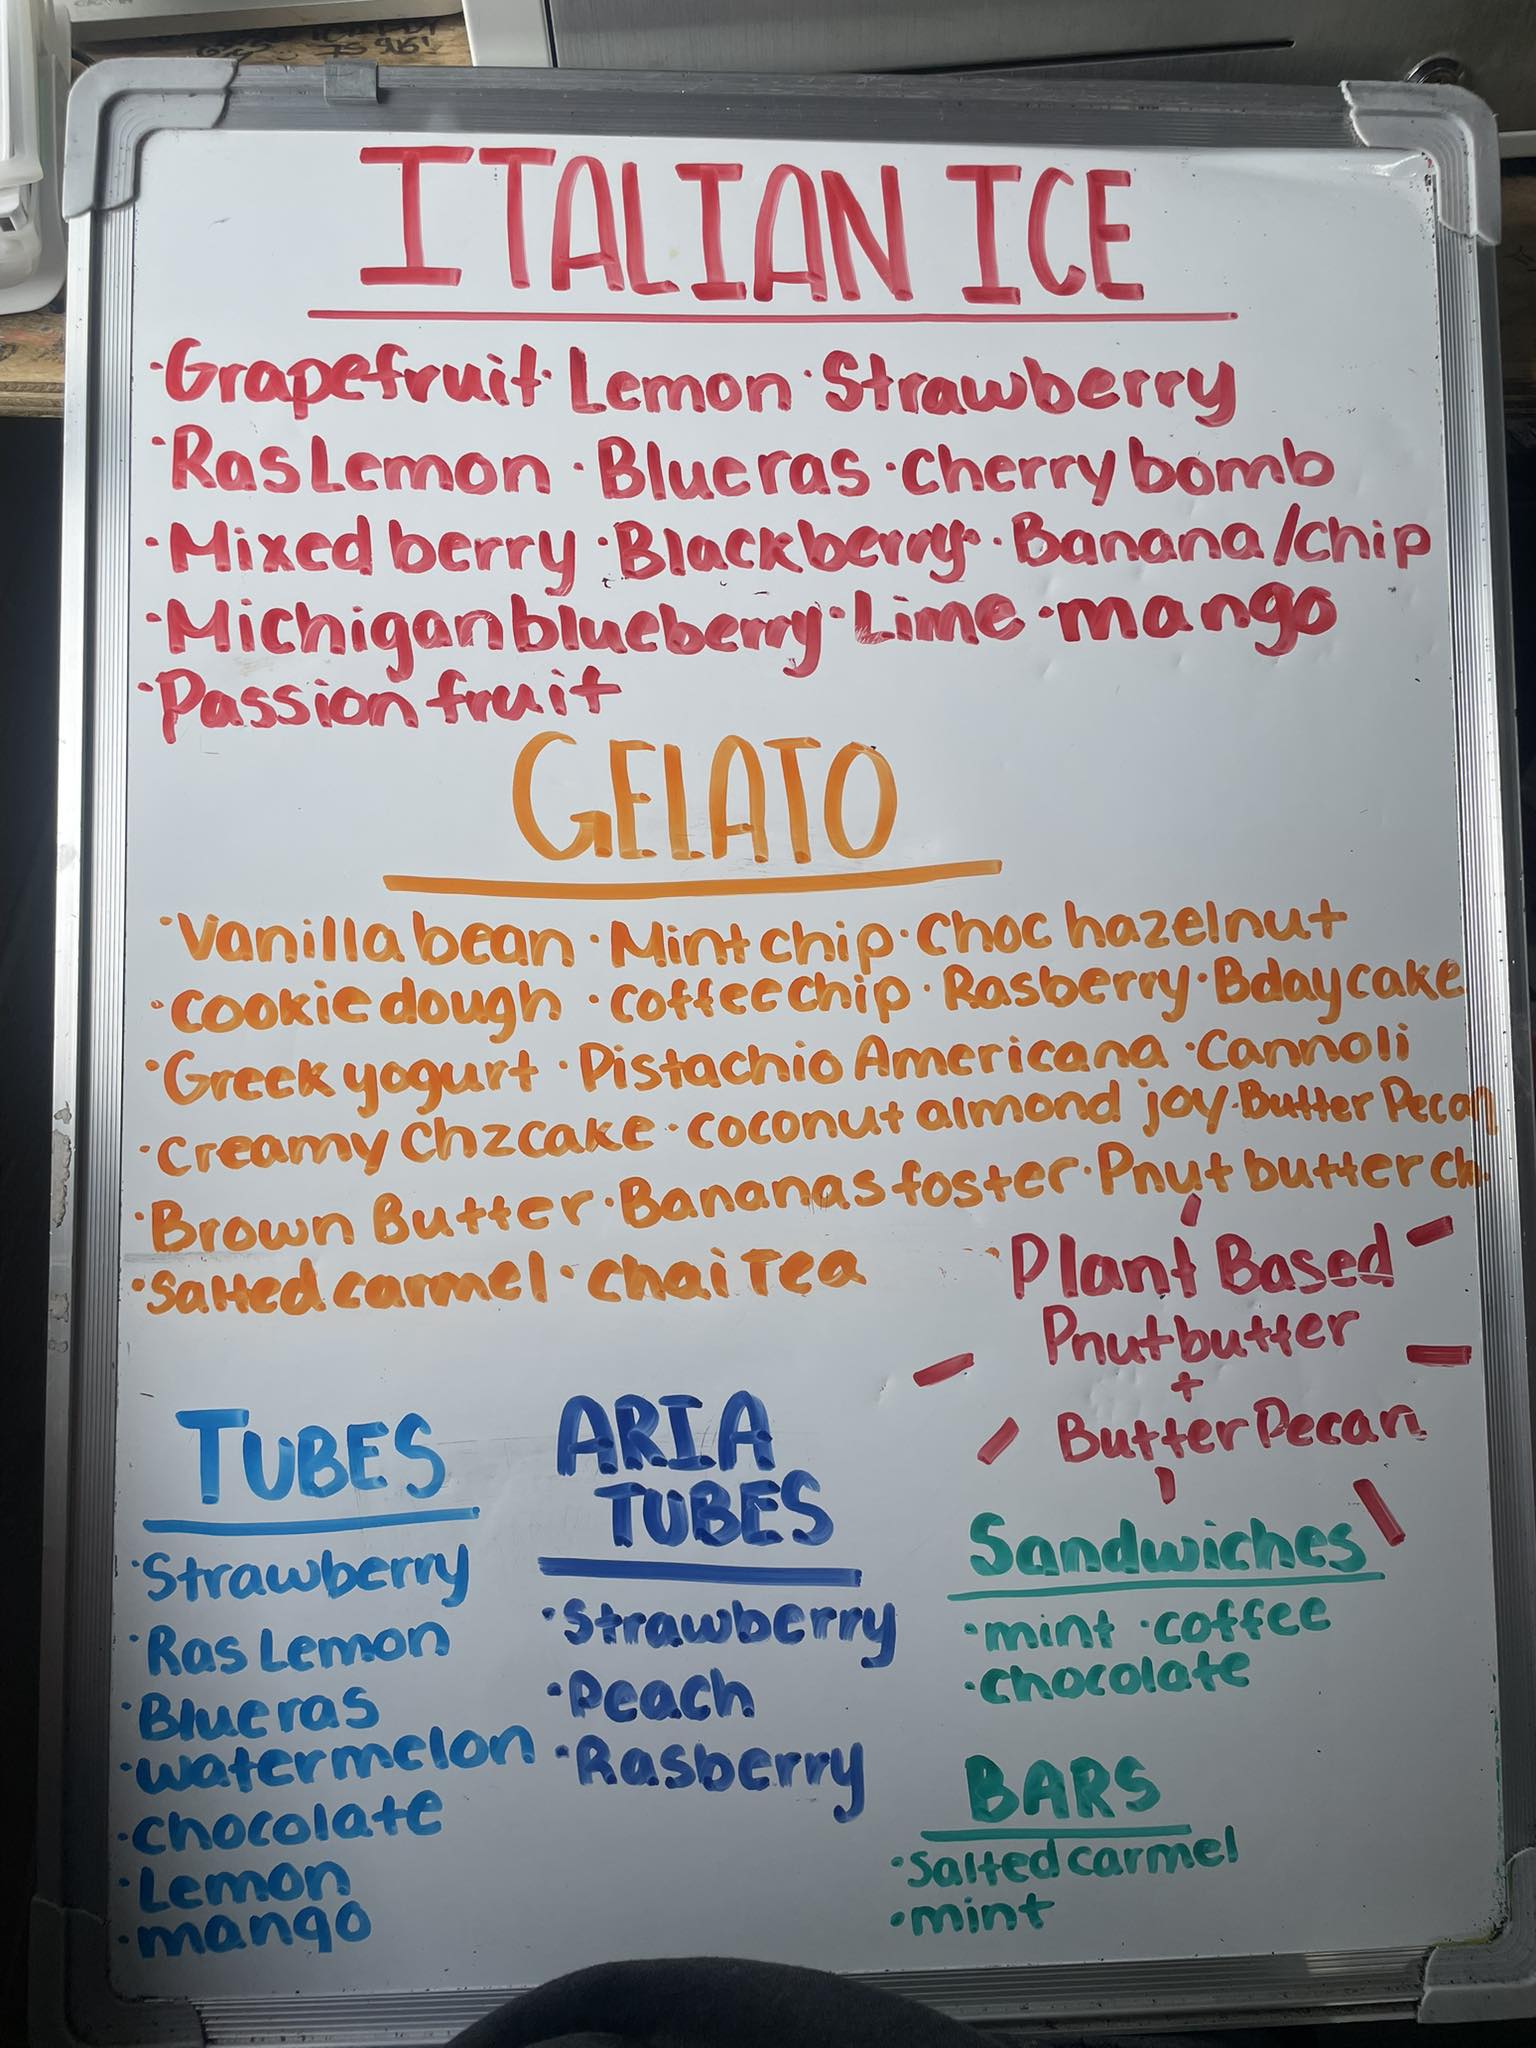 ITALIAN ICE
·Grapefruit· Lemon ·Strawberry
·Ras Lemon ·Blue ras ·Cherry bomb
·Mixed berry ·Blackberry· ·Banana/chip
·Michigan blueberry ·Lime ·mango
·Passion fruit
GELATO
·Vanilla bean ·Mint chip ·Choc hazelnut
·Cookie dough ·Coffee chip ·Rasberry ·Bday cake
·Greek yogurt ·Pistachio Americana ·Cannoli
·Creamy Chzcake ·Coconut almond joy ·Butter Pecan
·Brown Butter ·Bananas foster ·Pnut butter
·Salted carmel ·Chai Tea
Plant Based
Pnut butter
+
Butter Pecan
TUBES
·Strawberry
·Ras Lemon
·Blue ras
·Watermelon
·Chocolate
·Lemon
·mango
ARIA
TUBES
·Strawberry
·Peach
·Rasberry
Sandwiches
·mint ·coffee
·chocolate
BARS
·Salted carmel
·mint